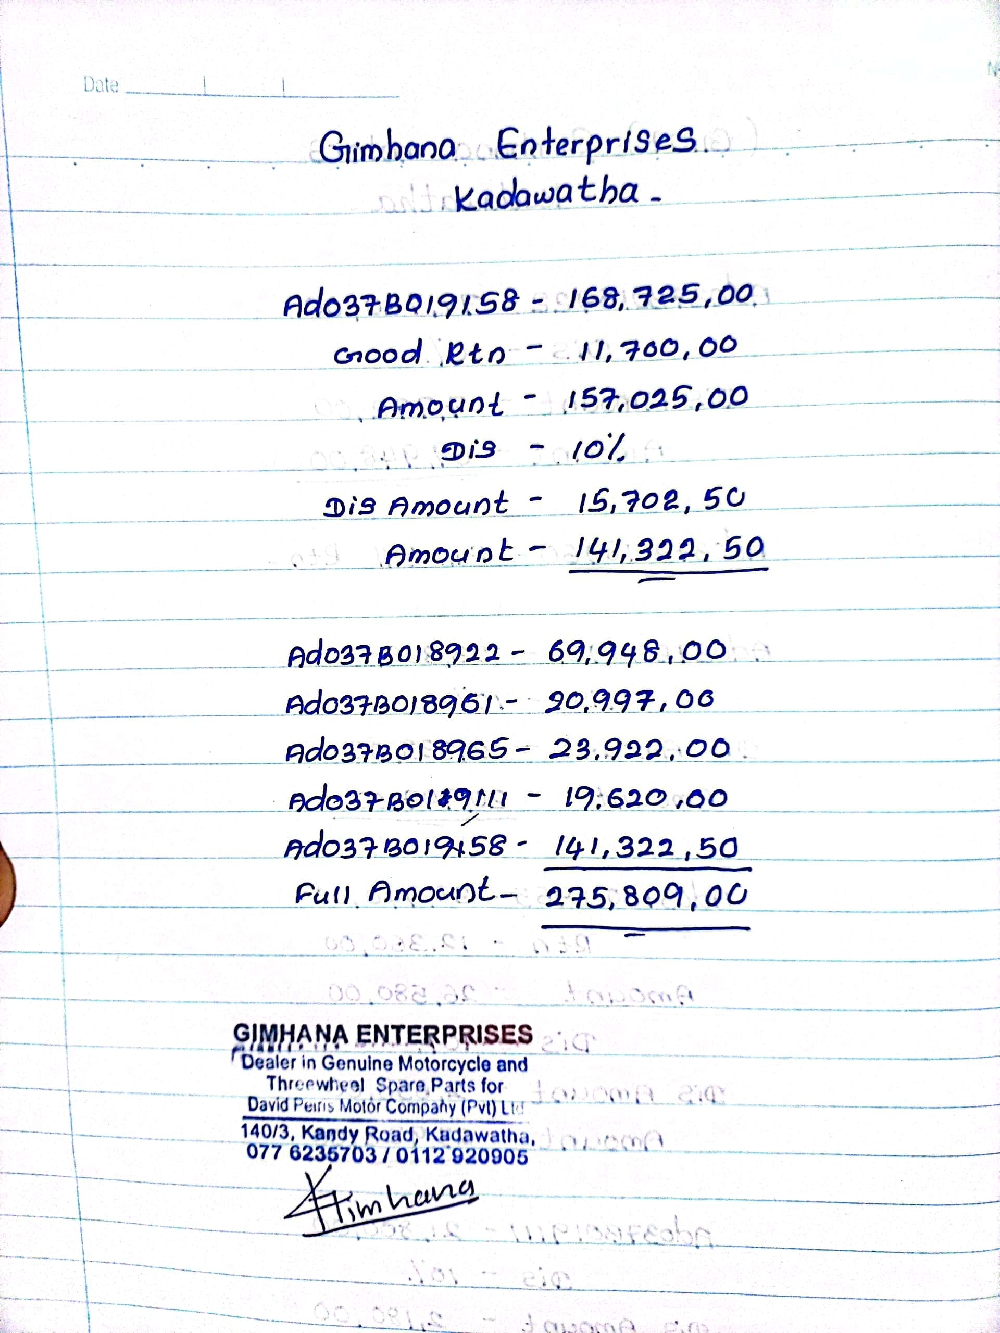 Date
Gimhana Enterprises
Kadawatha -
Ad037B019158 - 168,725,00
Good Rtn - 11,700,00
Amount - 157,025,00
Dis - 10%
Dis Amount - 15,702,50
Amount - 141,322,50
Ad037B018922 - 69,948,00
Ad037B018961 - 20,997,00
Ad037B018965 - 23,922,00
Ad037B019111 - 19,620,00
Ad037B019158 - 141,322,50
Full Amount - 275,809,00
GIMHANA ENTERPRISES
Dealer in Genuine Motorcycle and
Threewheel Spare Parts for
David Peiris Motor Company (Pvt) Ltd
140/3, Kandy Road, Kadawatha,
077 6235703 / 0112 920905
Gimhana